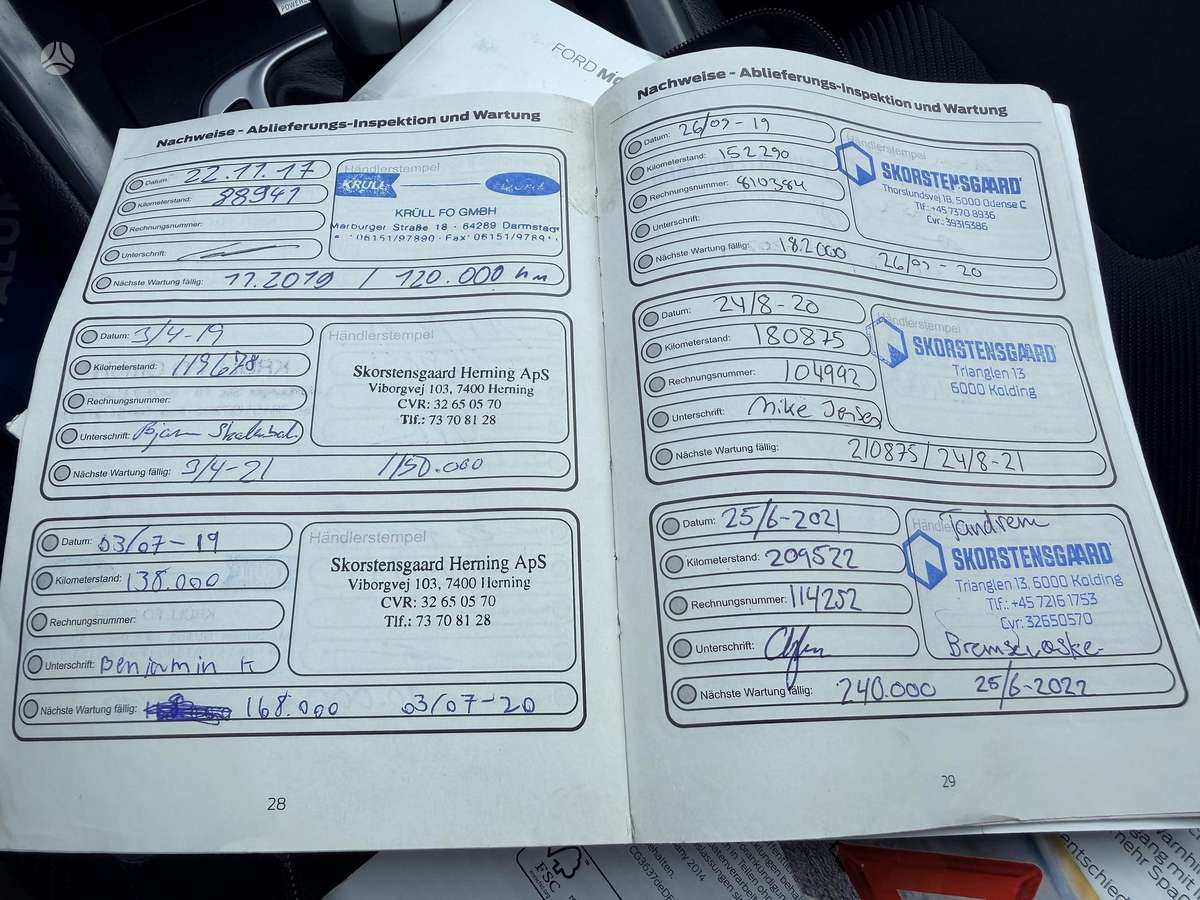 POWERS
FORD
Nachweise - Ablieferungs-Inspektion und Wartung
Datum: 22.11.17
Kilometerstand: 88941
Rechnungsnummer:
Unterschrift:
Nächste Wartung fällig: 11.2019 / 120.000 km
Händlerstempel
KRÜLL
KRÜLL FO GMBH
Marburger Straße 18 · 64289 Darmstadt
06151/97890 · Fax 06151/9789
Datum: 3/4-19
Kilometerstand: 119678
Rechnungsnummer:
Unterschrift: Bjarn
Nächste Wartung fällig: 3/4-21 150.000
Händlerstempel
Skorstensgaard Herning ApS
Viborgvej 103, 7400 Herning
CVR: 32 65 05 70
Tlf.: 73 70 81 28
Datum: 03/07-19
Kilometerstand: 138.000
Rechnungsnummer:
Unterschrift: Benjamin K
Nächste Wartung fällig: 168.000 03/07-20
Händlerstempel
Skorstensgaard Herning ApS
Viborgvej 103, 7400 Herning
CVR: 32 65 05 70
Tlf.: 73 70 81 28
28
Nachweise - Ablieferungs-Inspektion und Wartung
Datum: 26/09-19
Kilometerstand: 152290
Rechnungsnummer: 810384
Unterschrift:
Nächste Wartung fällig: 182000 26/09-20
Händlerstempel
SKORSTENSGAARD
Thorslundsvej 1B, 5000 Odense C
Tlf.: +45 7370 8936
Cvr.: 39315386
Datum: 24/8-20
Kilometerstand: 180875
Rechnungsnummer: 104992
Unterschrift: Mike Jensen
Nächste Wartung fällig: 210875/24/8-21
Händlerstempel
SKORSTENSGAARD
Trianglen 13
6000 Kolding
Datum: 25/6-2021
Kilometerstand: 209522
Rechnungsnummer: 114252
Unterschrift:
Nächste Wartung fällig: 240.000 25/6-2022
Tandrem
SKORSTENSGAARD
Trianglen 13, 6000 Kolding
Tlf.: +45 7216 1753
Cvr.: 32650570
Bremsevæske
29
FSC